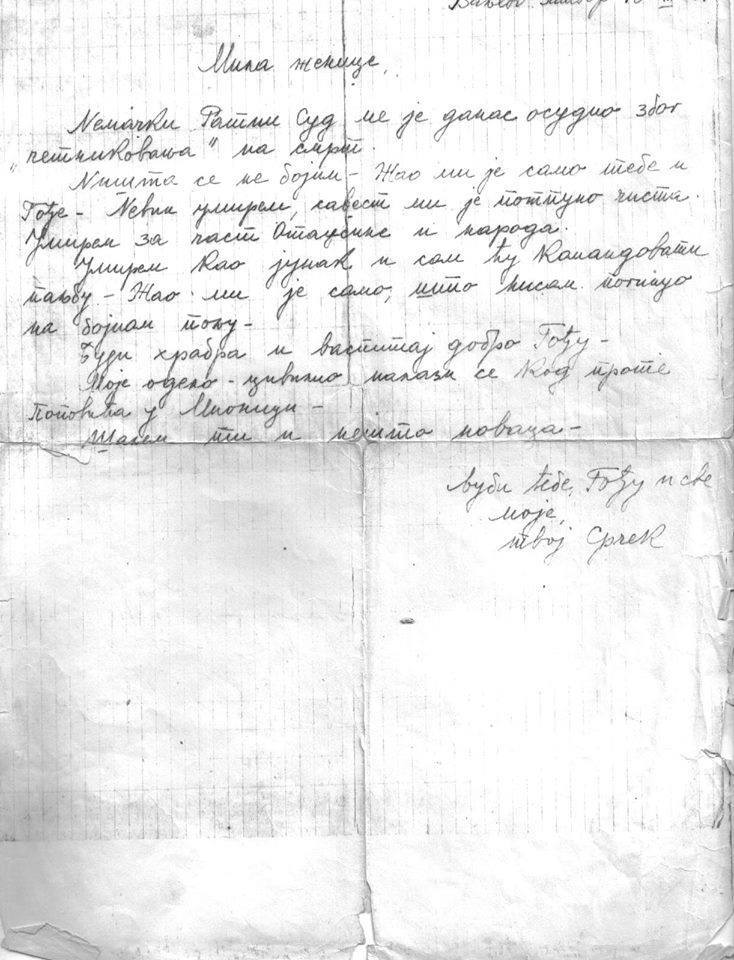 Мила женице,
Немачки Ратни Суд ме је данас осудио због
„четниковања" на смрт.
Ништа се не бојим – Жао ми је само тебе и
Гође – Невин умирем, савест ми је потпуно чиста.
Умирем за част Отаџбине и народа.
Умирем као јунак и сам ћу командовати
паљбу – Жао ми је само, што нисам погинуо
на бојном пољу –
Буди храбра и васпитај добро Гођу –
Моје одело – цивилно налази се код проте
Поповића у Мионици –
Шаљем ти и нешто новаца –
Љуби тебе, Гођу и све
моје,
твој Срчек